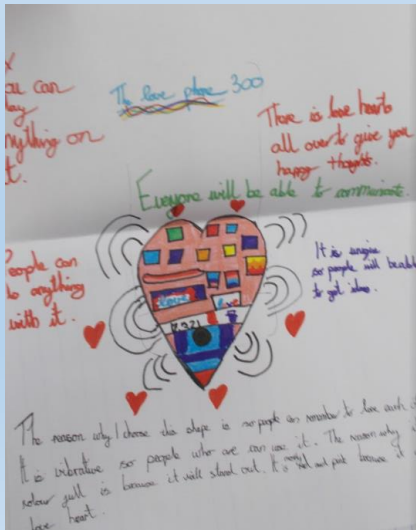 The love phone 300
ou can
ay
nything on
t.
There is love hearts
all over to give you
happy thoughts.
Everyone will be able to communicate.
eople can
o anything
with it.
It is unique
so people will be able
to get idea.
love
The reason why I choose this shape is so people can remember to love each
It is vibrative so people who are can use it. The reason why
colour full is because it will stand out. It is mostly red and pink because it
love heart.